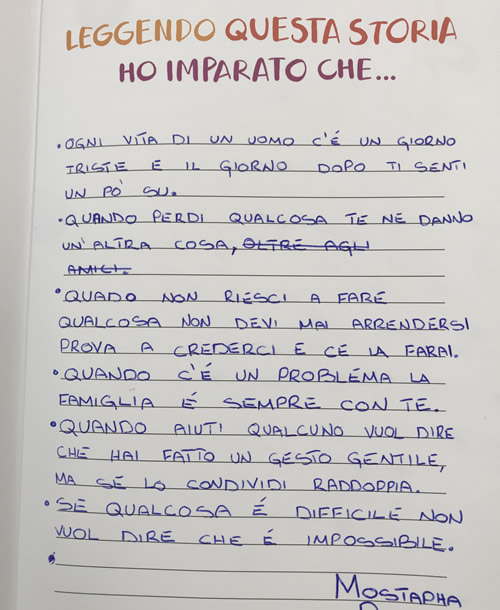 LEGGENDO QUESTA STORIA
HO IMPARATO CHE...
• OGNI VITA DI UN UOMO C'É UN GIORNO
TRISTE E IL GIORNO DOPO TI SENTI
UN PÓ SU.
• QUANDO PERDI QUALCOSA TE NE DANNO
UN'ALTRA COSA, OLTRE AGLI
AMICI.
• QUADO NON RIESCI A FARE
QUALCOSA NON DEVI MAI ARRENDERSI
PROVA A CREDERCI E CE LA FARAI.
• QUANDO C'É UN PROBLEMA LA
FAMIGLIA É SEMPRE CON TE.
• QUANDO AIUTI QUALCUNO VUOL DIRE
CHE HAI FATTO UN GESTO GENTILE,
MA SE LO CONDIVIDI RADDOPPIA.
• SE QUALCOSA É DIFFICILE NON
VUOL DIRE CHE É IMPOSSIBILE.
•
MOSTAPHA